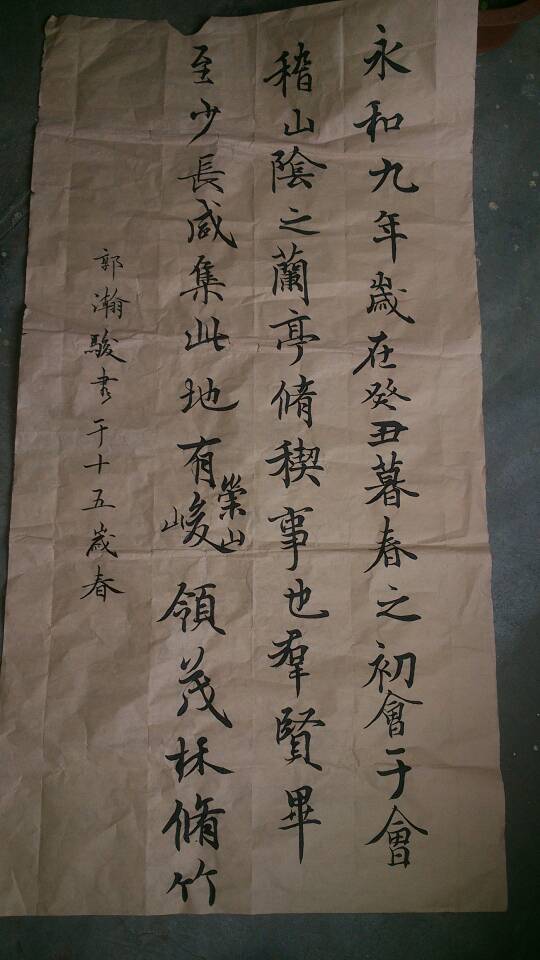 永和九年歲在癸丑暮春之初會于會
稽山陰之蘭亭脩稧事也羣賢畢
至少長咸集此地有崇山峻領茂林脩竹
郭瀚駿書于十五歲春